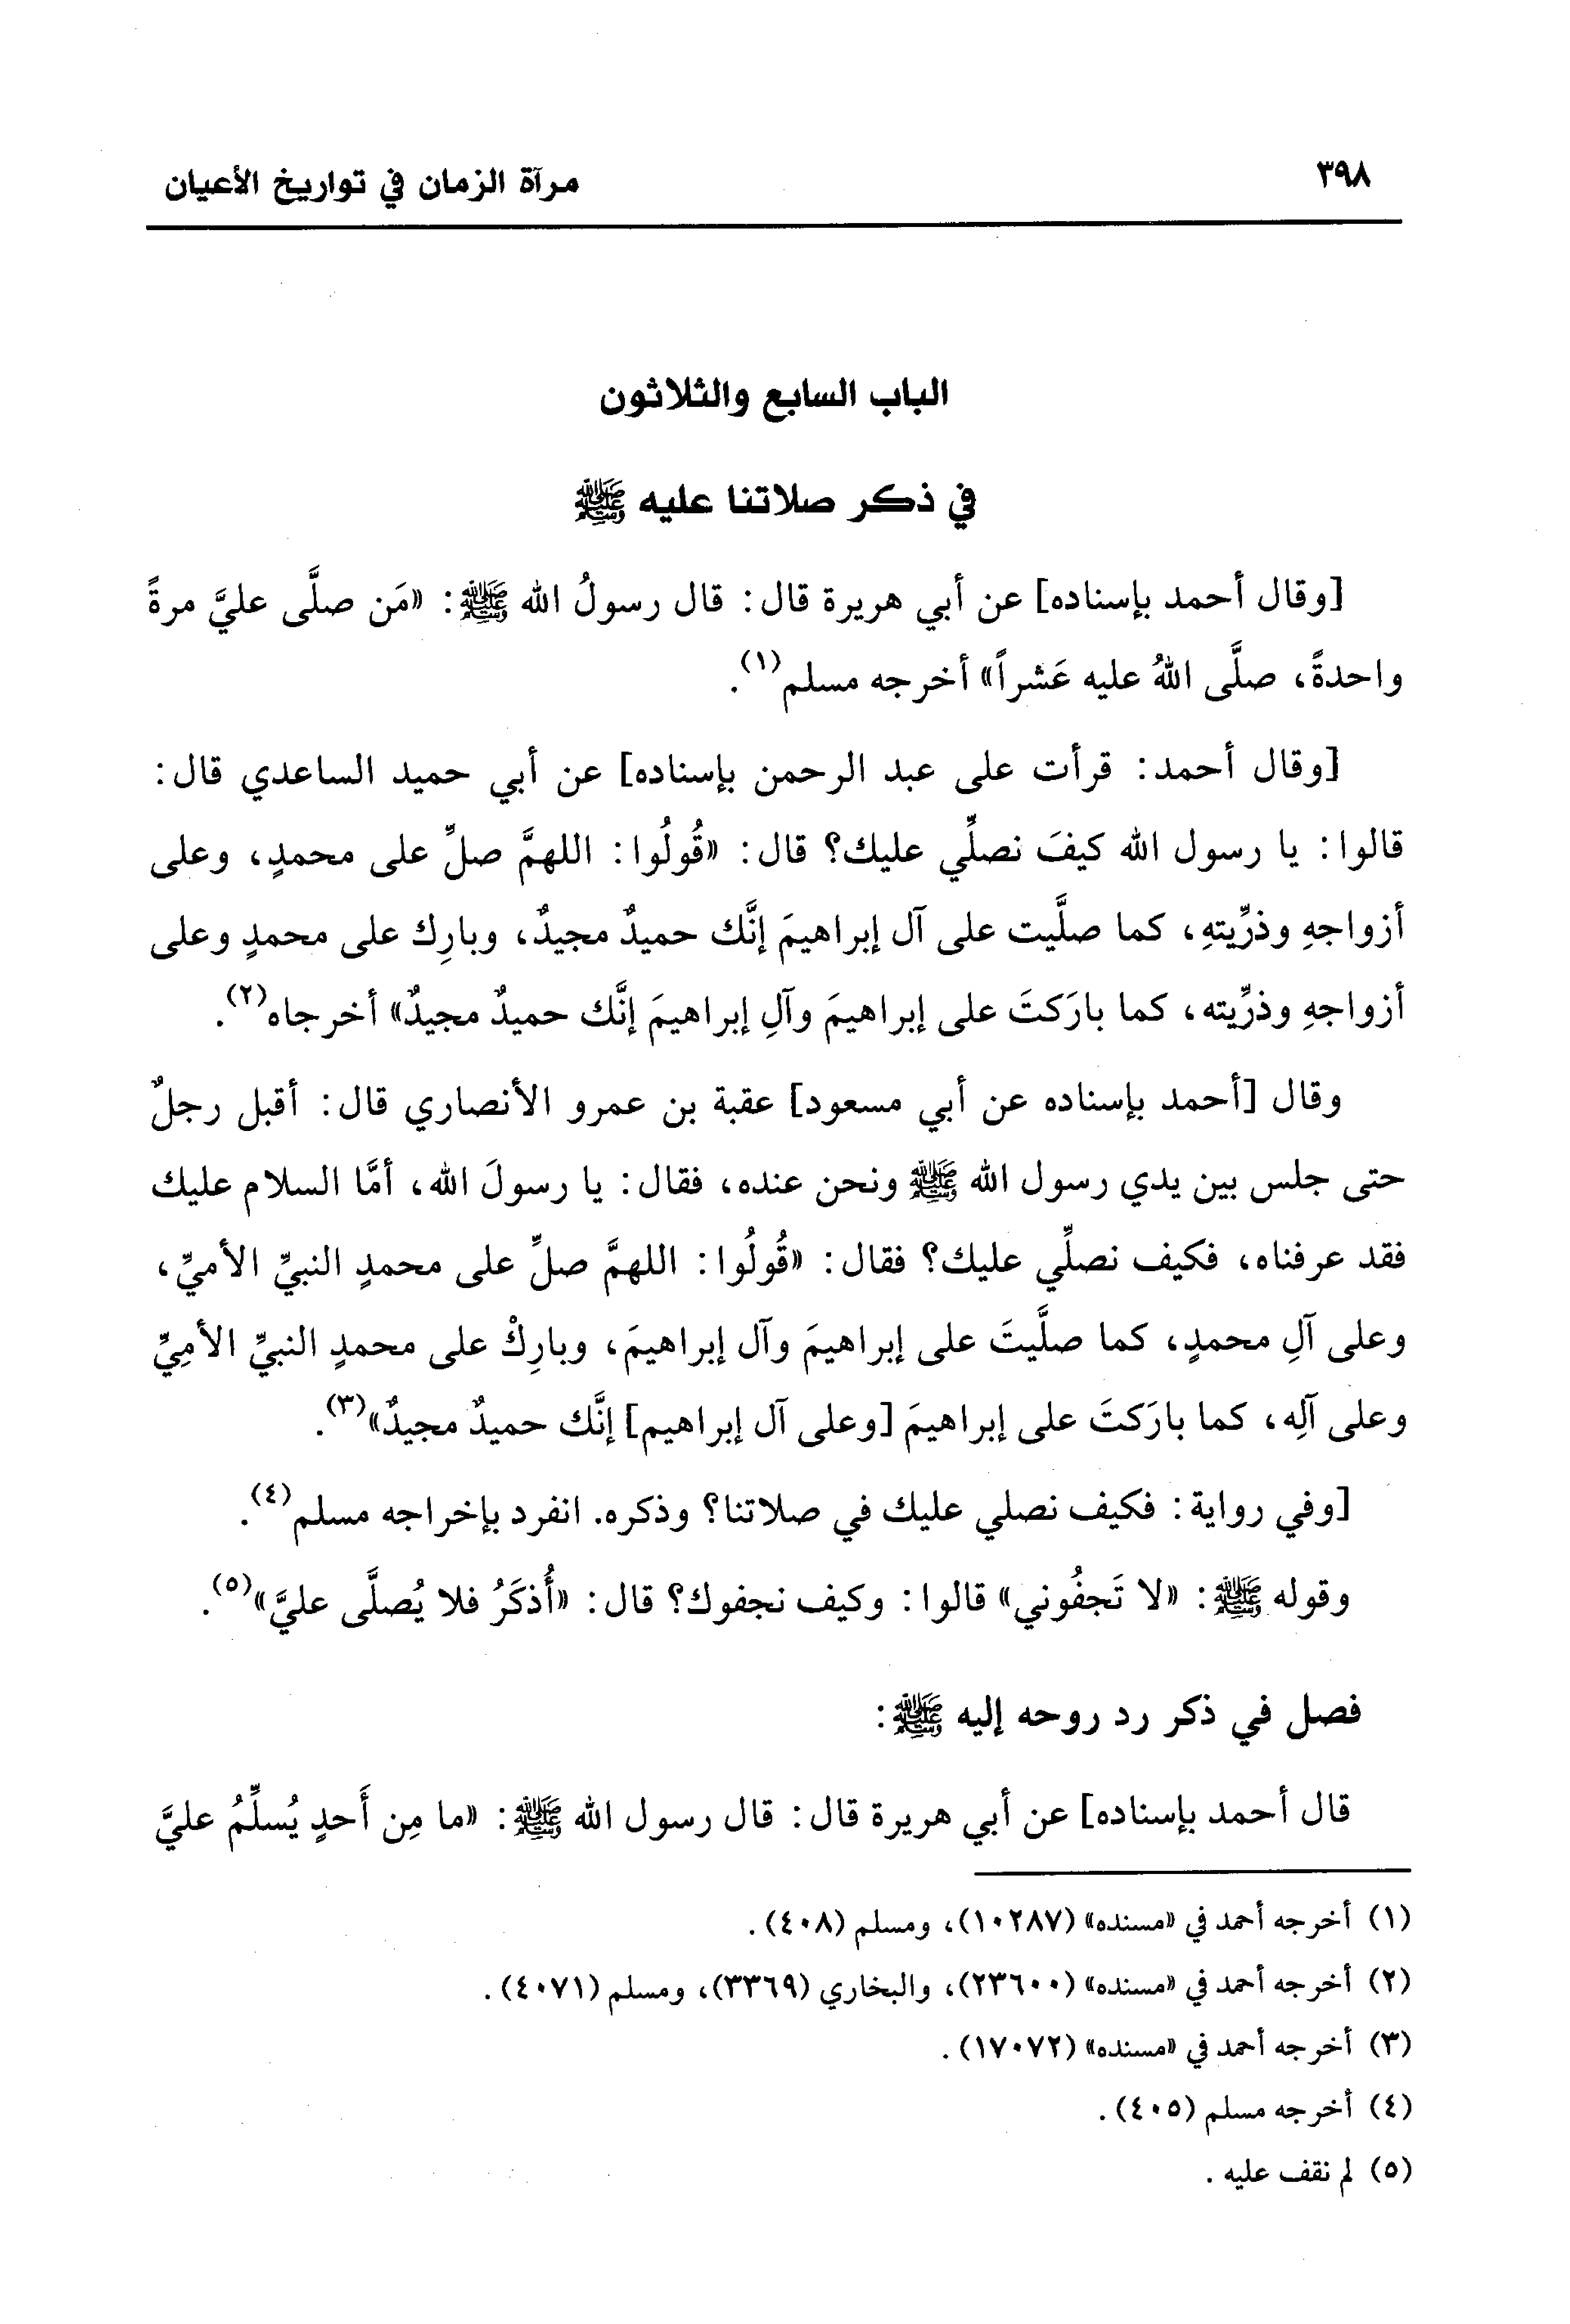 ٣٩٨
مرآة الزمان في تواريخ الأعيان
الباب السابع والثلاثون
في ذكر صلاتنا عليه ﷺ
[وقال أحمد بإسناده] عن أبي هريرة قال: قال رسولُ الله ﷺ: «مَن صلَّى عليَّ مرةً
واحدةً، صلَّى اللهُ عليه عَشراً» أخرجه مسلم(١).
[وقال أحمد: قرأت على عبد الرحمن بإسناده] عن أبي حميد الساعدي قال:
قالوا: يا رسول الله كيفَ نصلِّي عليك؟ قال: «قُولُوا: اللهمَّ صلِّ على محمدٍ، وعلى
أزواجهِ وذرِّيتهِ، كما صلَّيت على آل إبراهيمَ إنَّك حميدٌ مجيدٌ، وبارِك على محمدٍ وعلى
أزواجهِ وذرِّيته، كما بارَكتَ على إبراهيمَ وآلِ إبراهيمَ إنَّك حميدٌ مجيدٌ» أخرجاه(٢).
وقال [أحمد بإسناده عن أبي مسعود] عقبة بن عمرو الأنصاري قال: أقبل رجلٌ
حتى جلس بين يدي رسول الله ﷺ ونحن عنده، فقال: يا رسولَ الله، أمَّا السلام عليك
فقد عرفناه، فكيف نصلِّي عليك؟ فقال: «قُولُوا: اللهمَّ صلِّ على محمدٍ النبيِّ الأميِّ،
وعلى آلِ محمدٍ، كما صلَّيتَ على إبراهيمَ وآل إبراهيمَ، وبارِكْ على محمدٍ النبيِّ الأمِيِّ
وعلى آلِه، كما بارَكتَ على إبراهيمَ [وعلى آل إبراهيم] إنَّك حميدٌ مجيدٌ»(٣).
[وفي رواية: فكيف نصلي عليك في صلاتنا؟ وذكره. انفرد بإخراجه مسلم(٤).
وقوله ﷺ: «لا تَجفُوني» قالوا: وكيف نجفوك؟ قال: «أُذكَرُ فلا يُصلَّى عليَّ»(٥).
فصل في ذكر رد روحه إليه ﷺ:
قال أحمد بإسناده] عن أبي هريرة قال: قال رسول الله ﷺ: «ما مِن أَحدٍ يُسلِّمُ عليَّ
(١) أخرجه أحمد في «مسنده» (١٠٢٨٧)، ومسلم (٤٠٨).
(٢) أخرجه أحمد في «مسنده» (٢٣٦٠٠)، والبخاري (٣٣٦٩)، ومسلم (٤٠٧١).
(٣) أخرجه أحمد في «مسنده» (١٧٠٧٢).
(٤) أخرجه مسلم (٤٠٥).
(٥) لم نقف عليه.